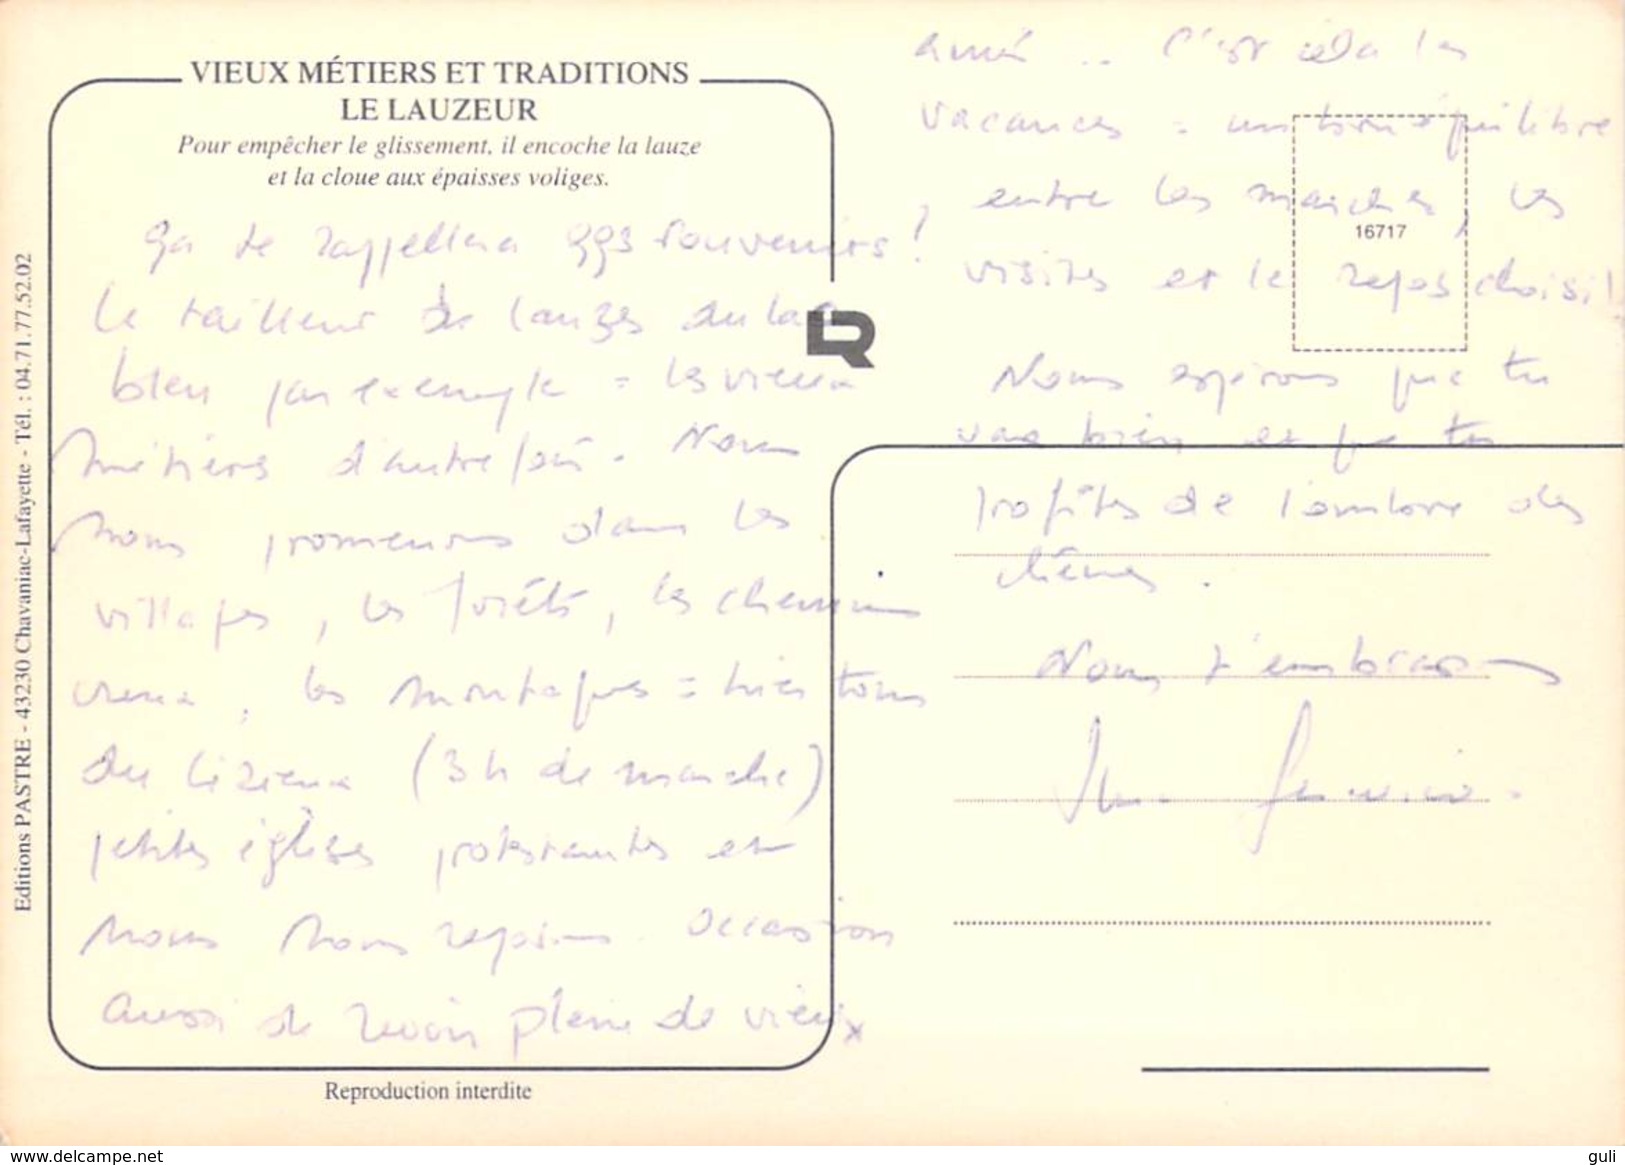 VIEUX MÉTIERS ET TRADITIONS
LE LAUZEUR
Pour empêcher le glissement, il encoche la lauze
et la cloue aux épaisses voliges.
Ça te rappellera qqs souvenirs !
Le tailleur de lauzes
bien par exemple = les vieux
métiers d'autrefois. Nous
nous promenons dans les
villages, les forêts, les chemins
creux, les montagnes = hier tour
du Lizieux (3h de marche)
petites églises protestantes et
nous nous reposons. Occasion
aussi de revoir plein de vieux
amis .. C'est cela les
vacances = un bon équilibre
entre les marches, les
visites et le repos choisi !
Nous espérons que tu
vas bien et que tu
profites de l'ombre des
chênes.
Nous t'embrassons
16717
Editions PASTRE - 43230 Chavaniac-Lafayette - Tél. : 04.71.77.52.02
Reproduction interdite
www.delcampe.net
guli